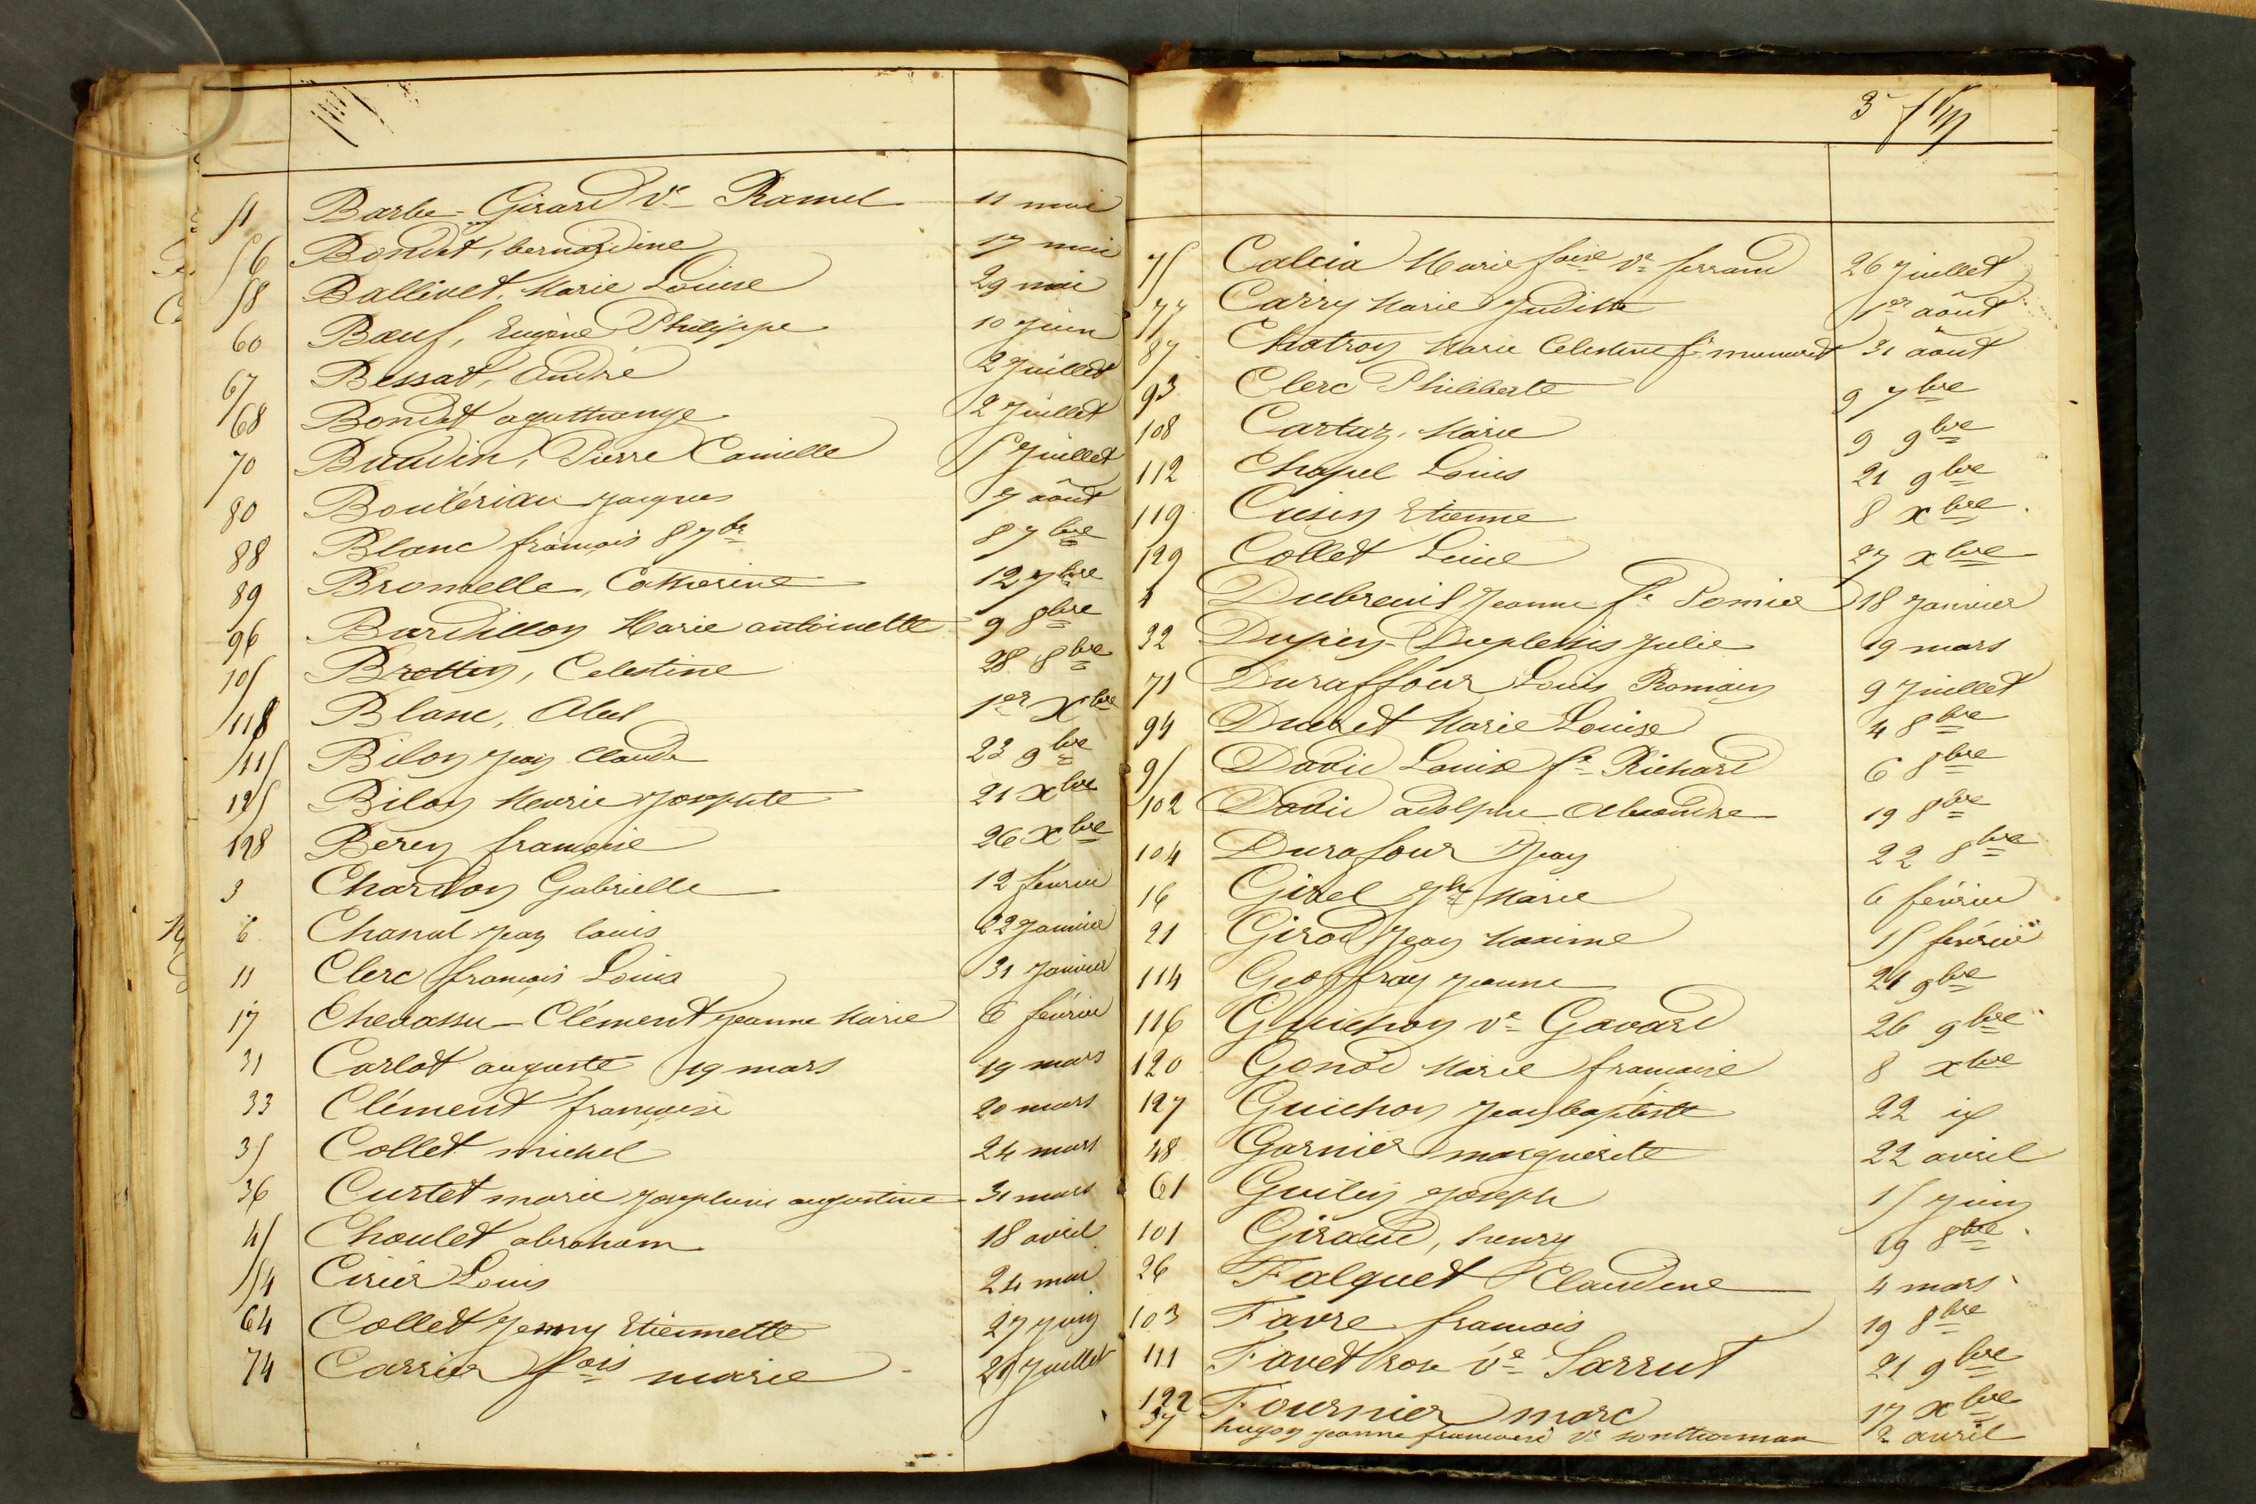 51 Barbe-Girard Ve Ramel 11 mai
56 Bondet, bernardine 17 mai
58 Ballivet, Marie Louise 29 mai
60 Bœuf, Eugène Philippe 10 Juin
67 Bessat, André 2 Juillet
68 Bondet agathange 2 Juillet
70 Baudin, Pierre Camille 5 Juillet
80 Boulérian Jacques 7 août
88 Blanc françois 8 7bre 8 7bre
89 Bromelle, Catherine 12 7bre
96 Bardillon Marie antoinette 9 8bre
105 Brettin, Celestine 28 8bre
118 Blanc, Abel 1er Xbre
115 Bilon Jean Claude 23 9bre
125 Bilon Marie Josephte 21 Xbre
128 Berey francoise 26 Xbre
3 Chardon Gabrielle 12 février
6 Chanal Jean louis 22 Janvier
11 Clerc françois Louis 31 Janvier
17 Chevassu-Clément Jeanne Marie 6 février
31 Carlot auguste 19 mars 19 mars
33 Clément françoise 20 mars
35 Collet michel 24 mars
36 Curtet marie Josephine augustine 31 mars
45 Choulet abraham 18 avril
54 Cirier Louis 24 mai
64 Collet Jenny Etiennette 27 Juin
74 Carrier fois marie 21 Juillet
3
75 Calcia Marie foise Ve ferrand 26 Juillet
77 Carry Marie Judith 1er août
87 Chatroy Marie Celestine fe 31 août
93 Clerc Philiberte 9 7bre
108 Cartaz, Marie 9 9bre
112 Chapel Louis 21 9bre
119 Cusin Etienne 8 xbre
129 Collet 27 xbre
4 Dubreuil Jeanne fe Pomier 18 Janvier
32 Dupuy-Duplessis Julie 19 mars
71 Duraffour Louis Romain 9 Juillet
94 Duret Marie Louise 4 8bre
95 David Louise fe Richard 6 8bre
102 David adolphe Alexandre 19 8bre
104 Durafour Jean 22 8bre
16 Girel Jh Marie 6 février
21 Girod Jean Maxime 15 février
114 Geoffray Jeanne 21 9bre
116 Guichon Ve Gavard 26 9bre
120 Gonod Marie francoise 8 xbre
127 Guichon Jean baptiste 22
48 Garnier marguerite 22 avril
61 Joseph 15 Juin
101 Giraud, henry 19 8bre
26 Falquet Claudine 4 mars
103 Favre francois 19 8bre
111 Favet rose Ve Sarrut 21 9bre
122 Fournier marc 17 xbre
37 hugon jeanne francoise Ve 2 avril